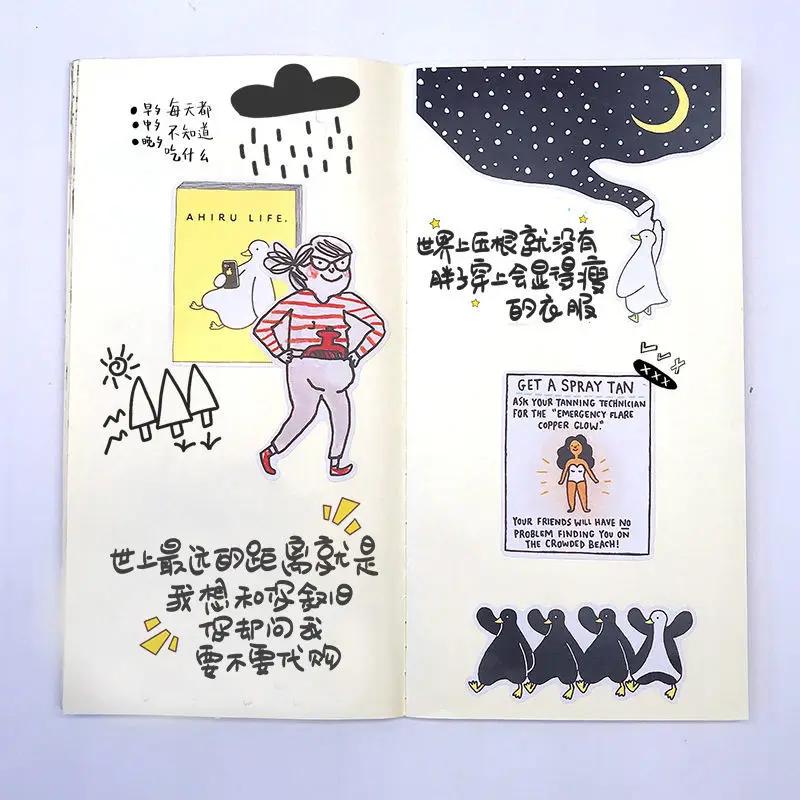 ●早夕 每天都
●中夕 不知道
●晚夕 吃什么
AHIRU LIFE.
世上最远的距离就是
我想和你叙旧
你却问我
要不要代购
世界上压根就没有
胖子穿上会显得瘦
的衣服
XXX
GET A SPRAY TAN
ASK YOUR TANNING TECHNICIAN
FOR THE "EMERGENCY FLARE
COPPER GLOW."
YOUR FRIENDS WILL HAVE NO
PROBLEM FINDING YOU ON
THE CROWDED BEACH!